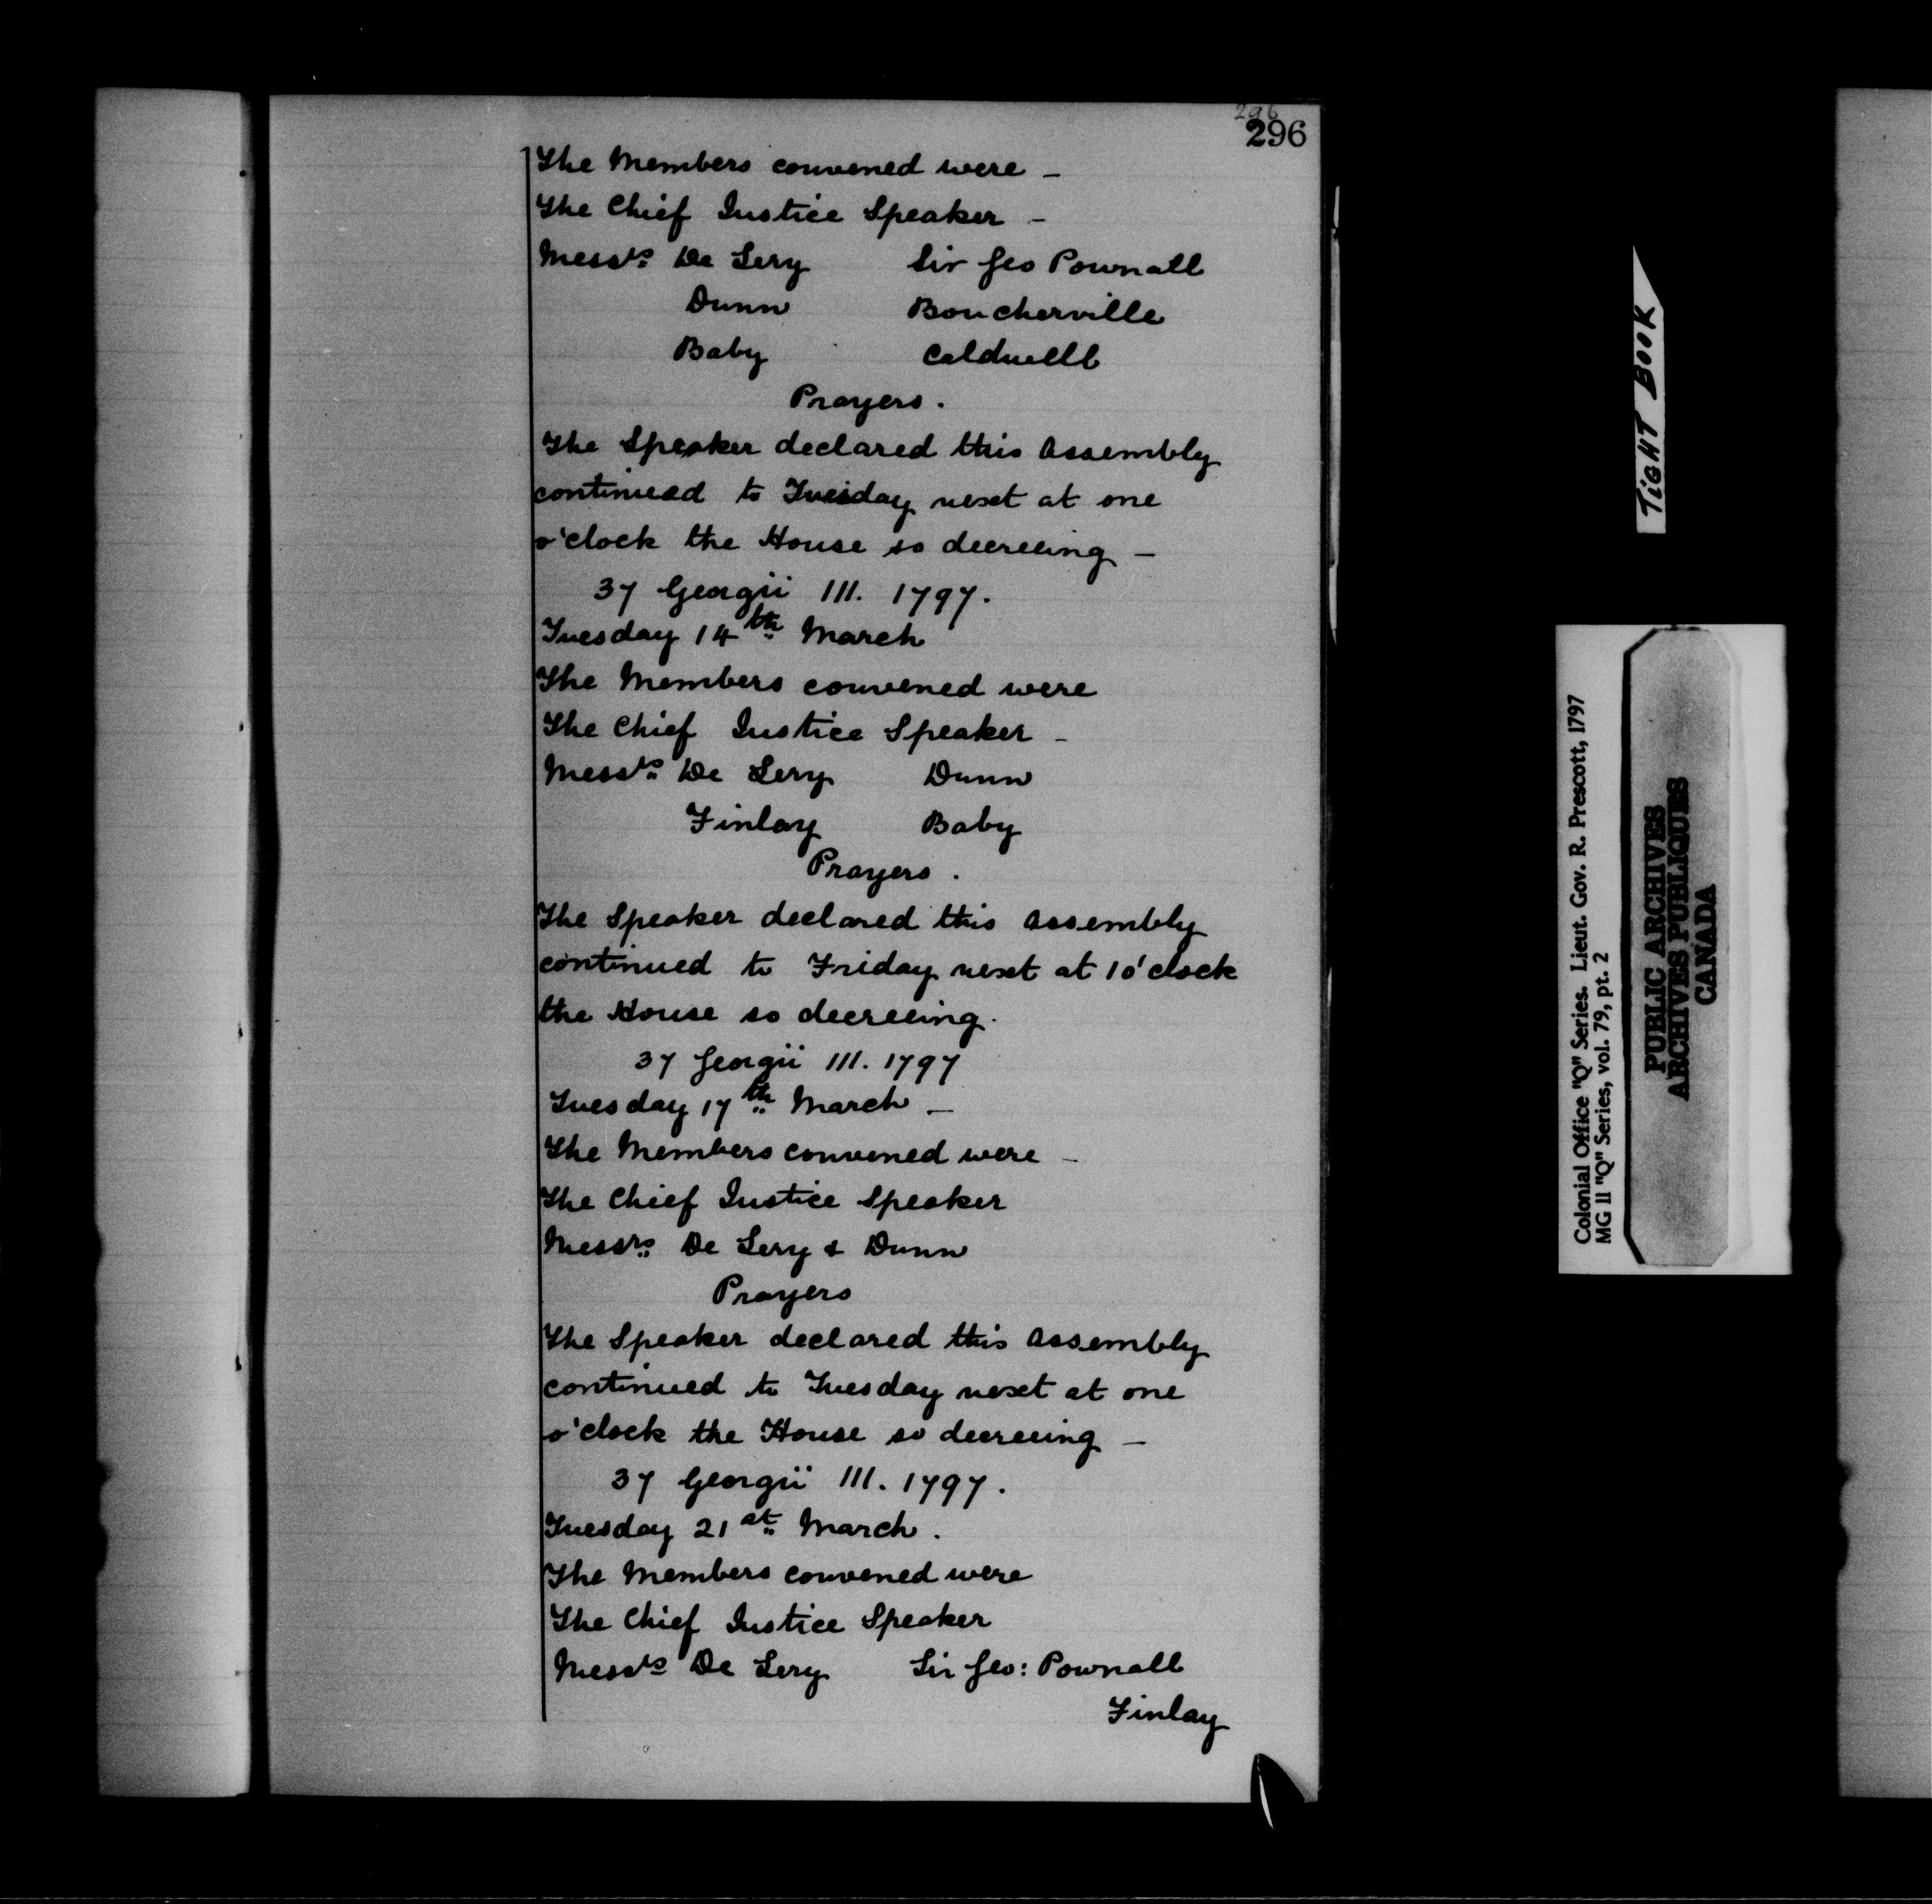 296
296
The Members convened were -
The Chief Justice Speaker -
Messrs De Lery Sir Geo Pownall
Dunn Boucherville
Baby Caldwell
Prayers.
The Speaker declared this Assembly
continued to Tuesday next at one
o'clock the House so decreeing -
37 Georgii III. 1797.
Tuesday 14th March
The Members convened were
The Chief Justice Speaker -
Messrs De Lery Dunn
Finlay Baby
Prayers.
The Speaker declared this Assembly
continued to Friday next at 1 o'clock
the House so decreeing.
37 Georgii III. 1797
Tuesday 17th March -
The Members convened were -
The Chief Justice Speaker
Messrs De Lery & Dunn
Prayers
The Speaker declared this Assembly
continued to Tuesday next at one
o'clock the House so decreeing -
37 Georgii III. 1797.
Tuesday 21st March.
The Members convened were
The Chief Justice Speaker
Messrs De Lery Sir Geo: Pownall
Finlay
TIGHT BOOK
Colonial Office "Q" Series. Lieut. Gov. R. Prescott, 1797
MG 11 "Q" Series, vol. 79, pt. 2
PUBLIC ARCHIVES
ARCHIVES PUBLIQUES
CANADA